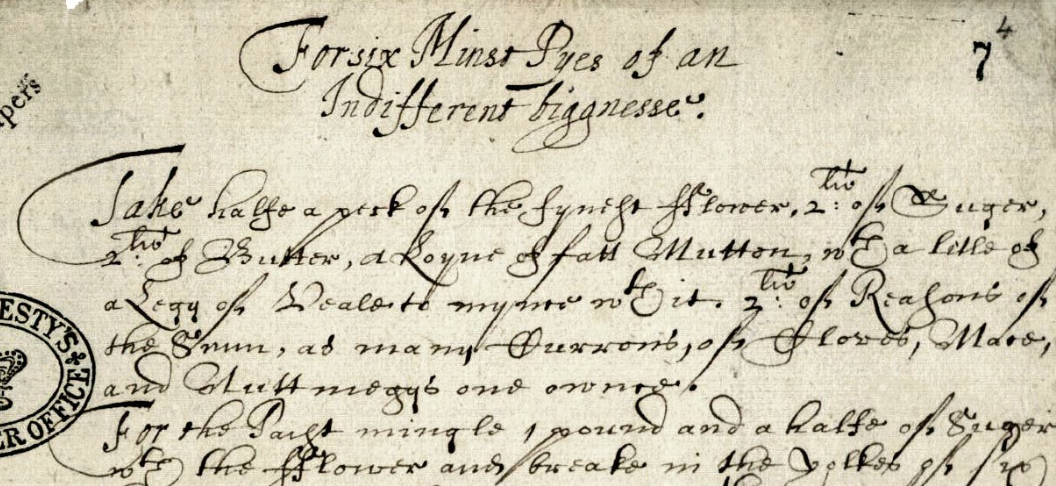 4
7
For six Minst Pyes of an
Indifferent biggnesse.
Take halfe a peck of the fynest fflower, 2: li of Suger,
2: li of Butter, a Loyne of fatt Mutton, wth a litle of
a Legg of Veale to mynce wth it. 2: li of Reasons of
the Sunn, as many Currons, of Cloves, Mace,
and Nuttmeggs one ownce.
For the Paest mingle 1 pound and a halfe of Suger
wth the fflower and breake in the yolkes of six
pers
ESTY'S
ER OFFICE